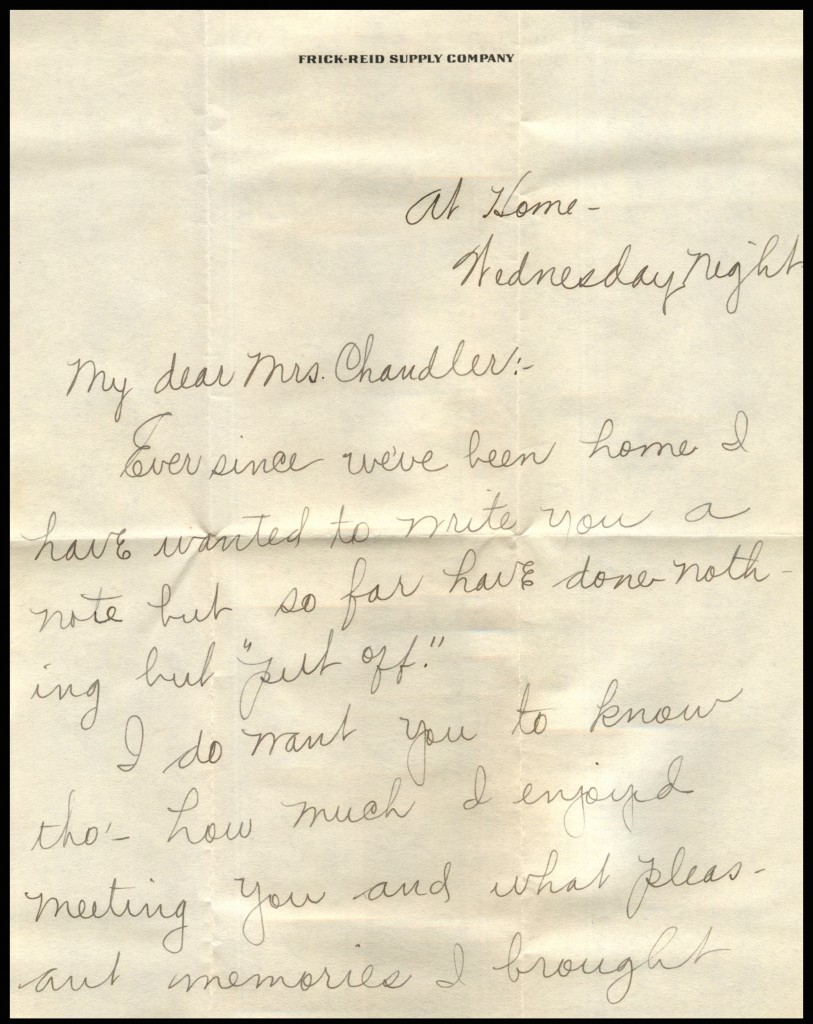 FRICK-REID SUPPLY COMPANY
At Home-
Wednesday Night
My dear Mrs. Chandler:-
Ever since we've been home I
have wanted to write you a
note but so far have done noth-
ing but "put off."
I do want you to know
tho'- how much I enjoyed
meeting you and what pleas-
ant memories I brought